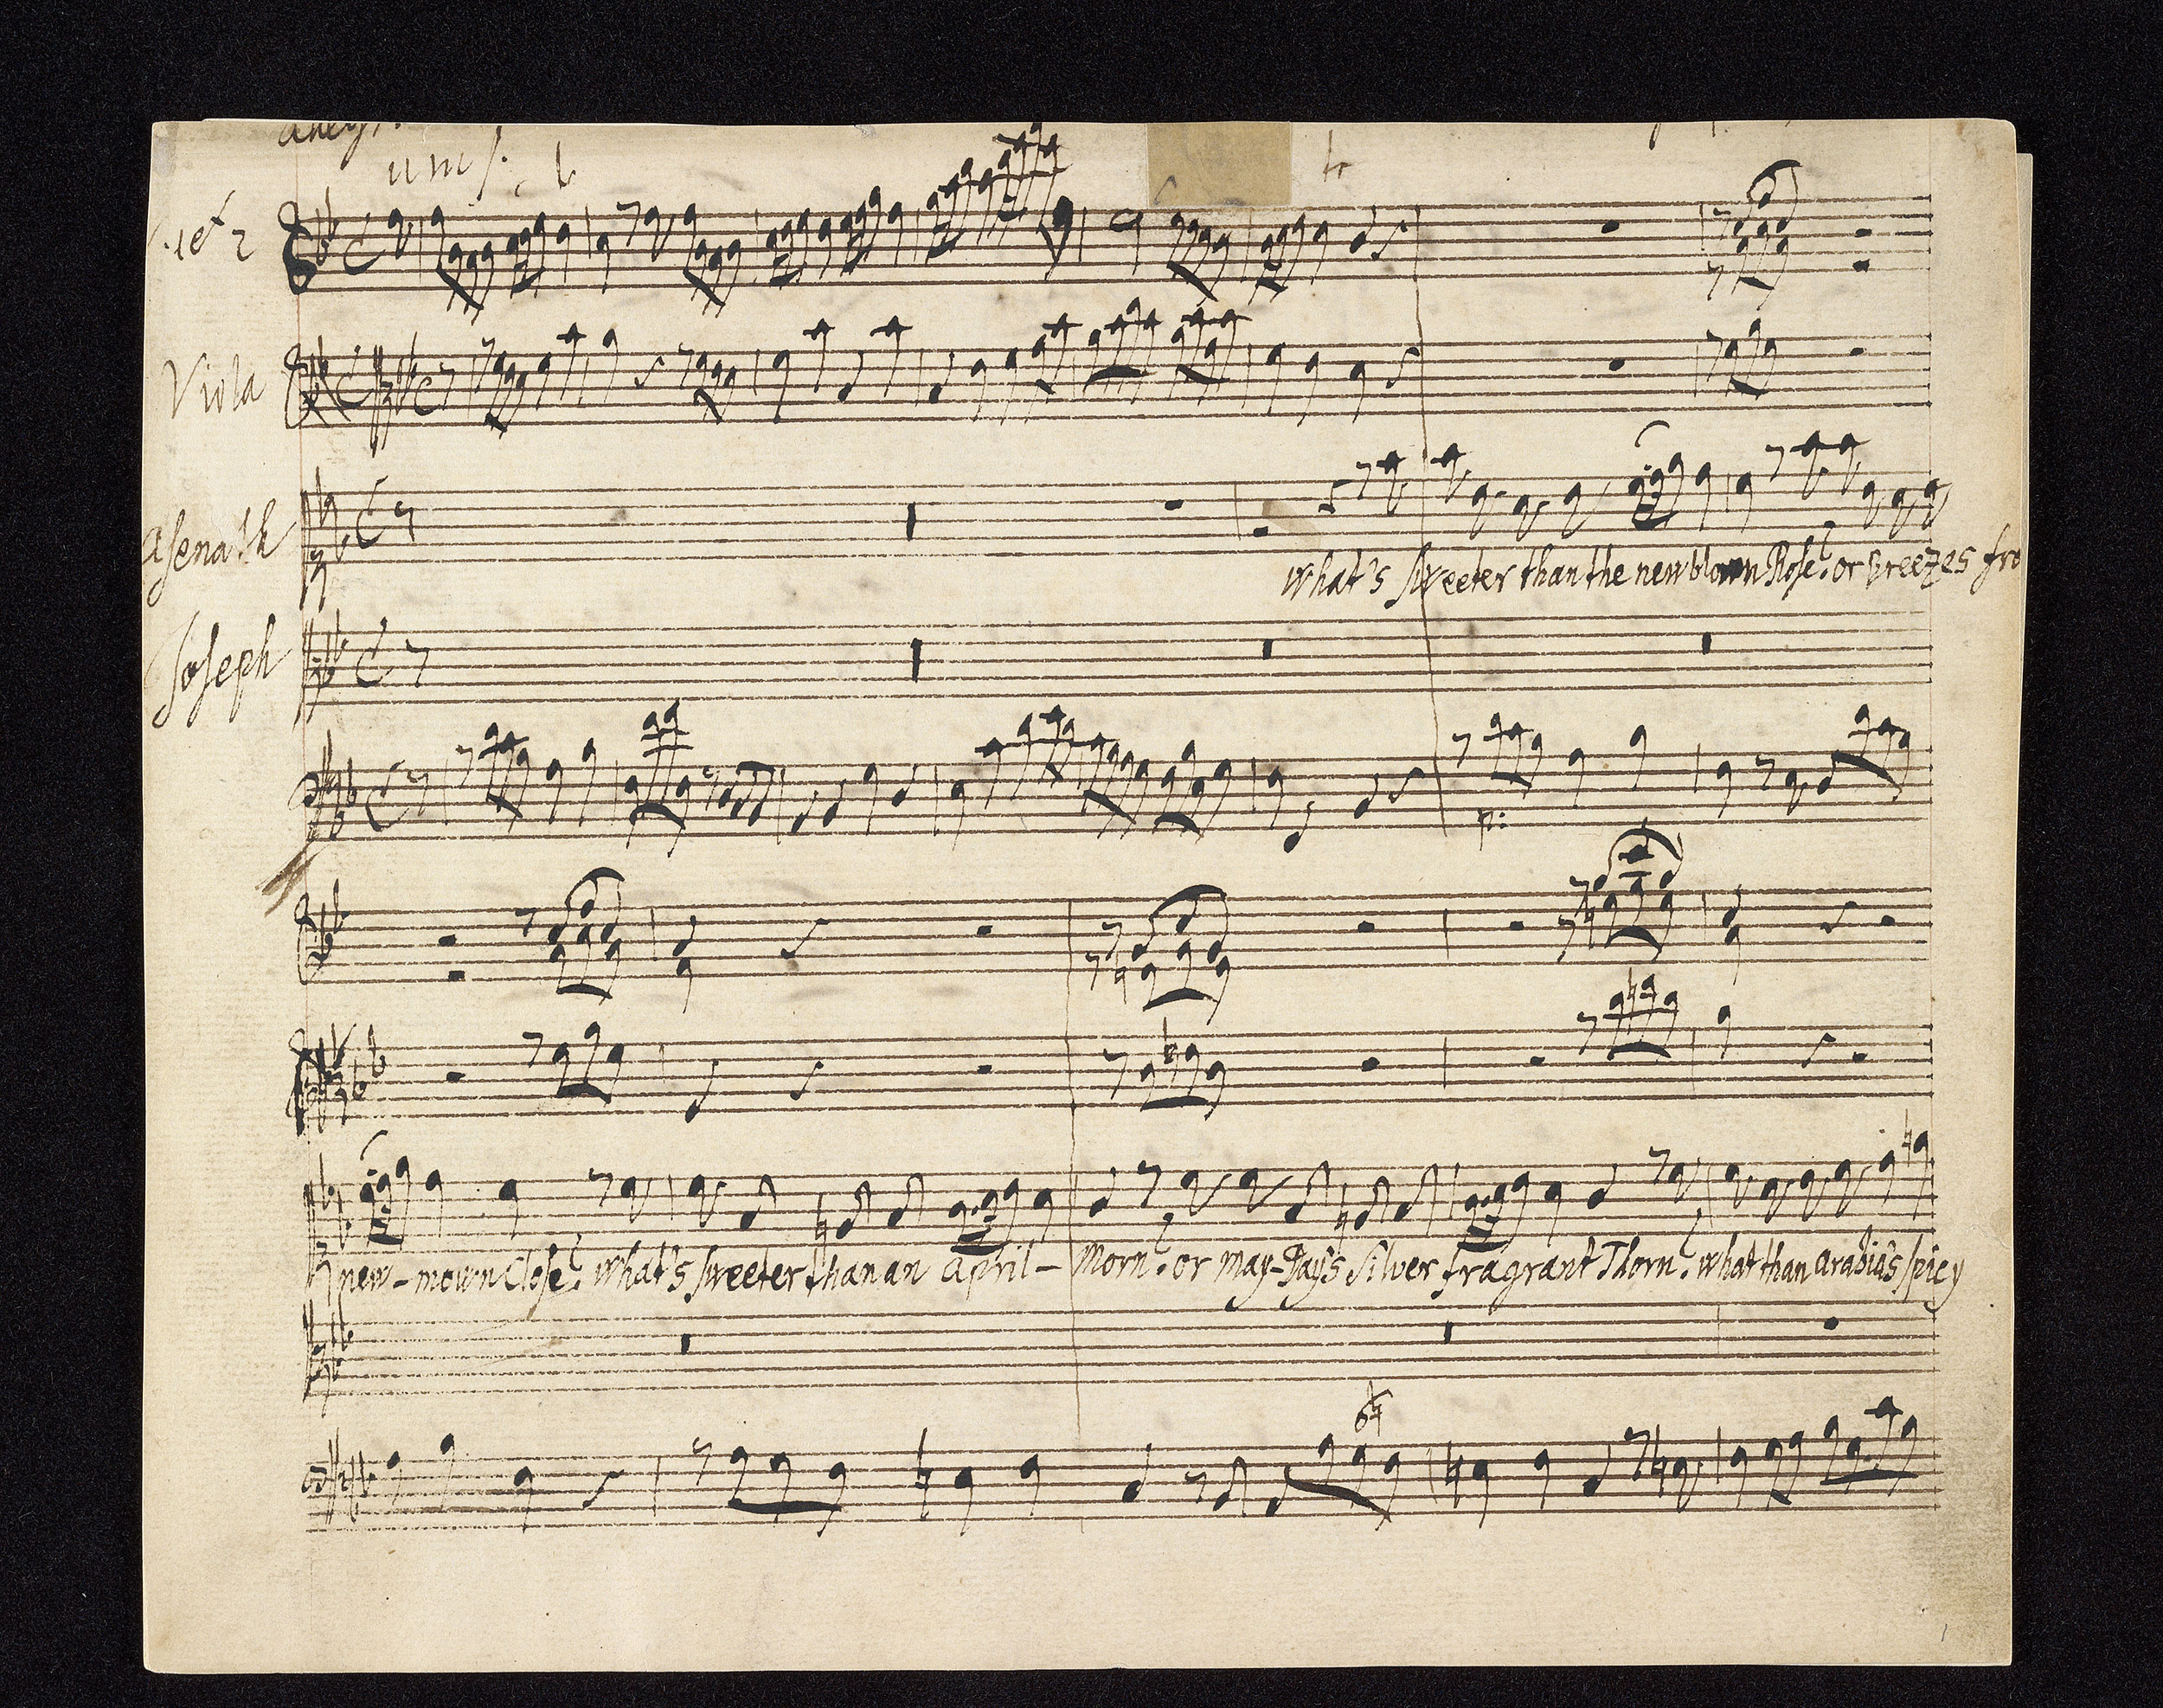 unis.
tr
et 2
Viola
Asenath
what's sweeter than the new blown Rose? or breezes fro
Joseph
new-mown Close? what's sweeter than an April-Morn? or May-Day's Silver fragrant Thorn? what than Arabia's spicy
6♮